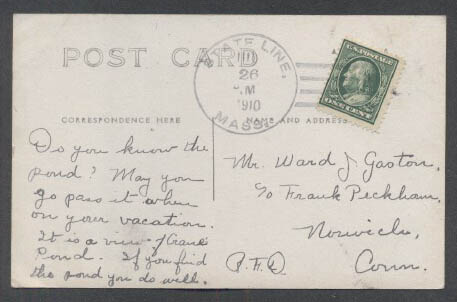 POST CARD
STATE LINE,
26
M
1910
MASS.
U.S. POSTAGE
ONE CENT
CORRESPONDENCE HERE
NAME AND ADDRESS
Do you know the
pond? May you
go pass it when
on your vacation.
It is a view of Crane
Pond. If you find
the pond you do well.
Mr. Ward J Gaston,
c/o Frank Peckham,
Norwich,
Conn.
R.F.D.